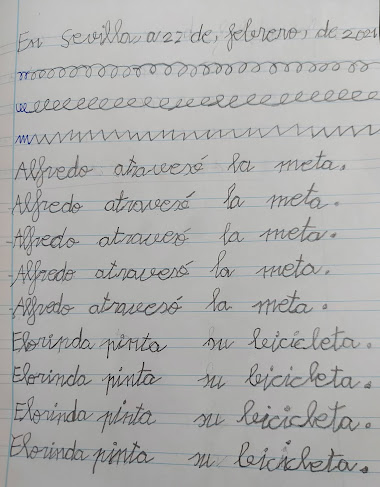 En Sevilla a 22 de, febrero, de 2021
Alfredo atravesó la meta.
-Alfredo atravesó la meta.
-Alfredo atravesó la meta.
-Alfredo atravesó la meta.
-Alfredo atravesó la meta.
Florinda pinta su bicicleta.
Florinda pinta su bicicleta.
Florinda pinta su bicicleta.
Florinda pinta su bicicleta.